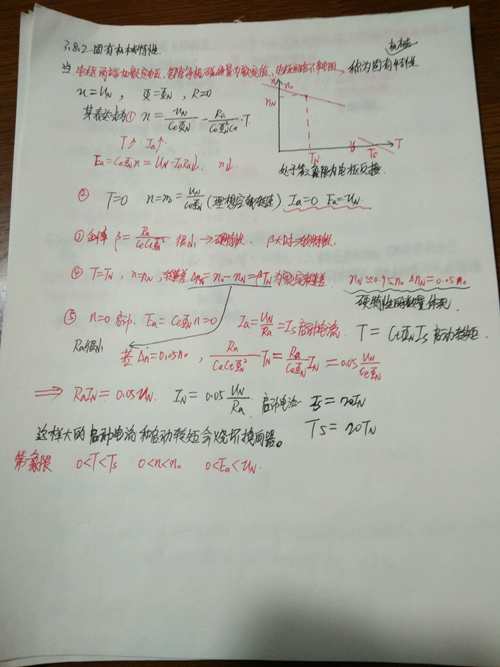 3.8.2 固有机械特性
当电枢两端加额定电压、气隙每极磁通量为额定值、电枢回路不串电阻，称为固有特性
u = U_N, Φ = Φ_N, R = 0
n
n₀
n_N
T_N
T_S
T
其表达式为① n = U_N/(CeΦ_N) - Ra/(CeΦ_N²Ct)·T
T↑ Ia↑
Ea = CeΦ_N n = U_N - IaRa↓ n↓
② T=0 n=n₀ = U_N/(CeΦ_N) (理想空载转速) Ia=0 Ea=U_N
③ 斜率 β = Ra/(CeCtΦ_N²) 很小 → 硬特性, β大时→软特性.
④ T=T_N, n=n_N, 转速差 Δn_N = n₀ - n_N = βT_N 为额定转速差 n_N≈0.95n₀ Δn_N=0.05n₀
硬特性的数量体现.
⑤ n=0 启动. Ea = CeΦ_N n=0 Ia = U_N/Ra = I_S 启动电流. T = CtΦ_N I_S 启动转矩
Ra很小
若 Δn=0.05n₀, Ra/(CeCtΦ_N²) T_N = Ra/(CeΦ_N) I_N = 0.05 U_N/(CeΦ_N)
⇒ RaI_N = 0.05U_N. I_N = 0.05 U_N/Ra. 启动电流 I_S = 20I_N
T_S = 20T_N
这样大的启动电流和启动转矩会烧坏换向器。
第一象限 0<T<T_S 0<n<n₀ 0<Ea<U_N.